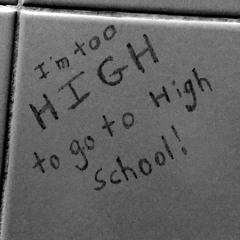 I'm too
HIGH
to go to High
school!